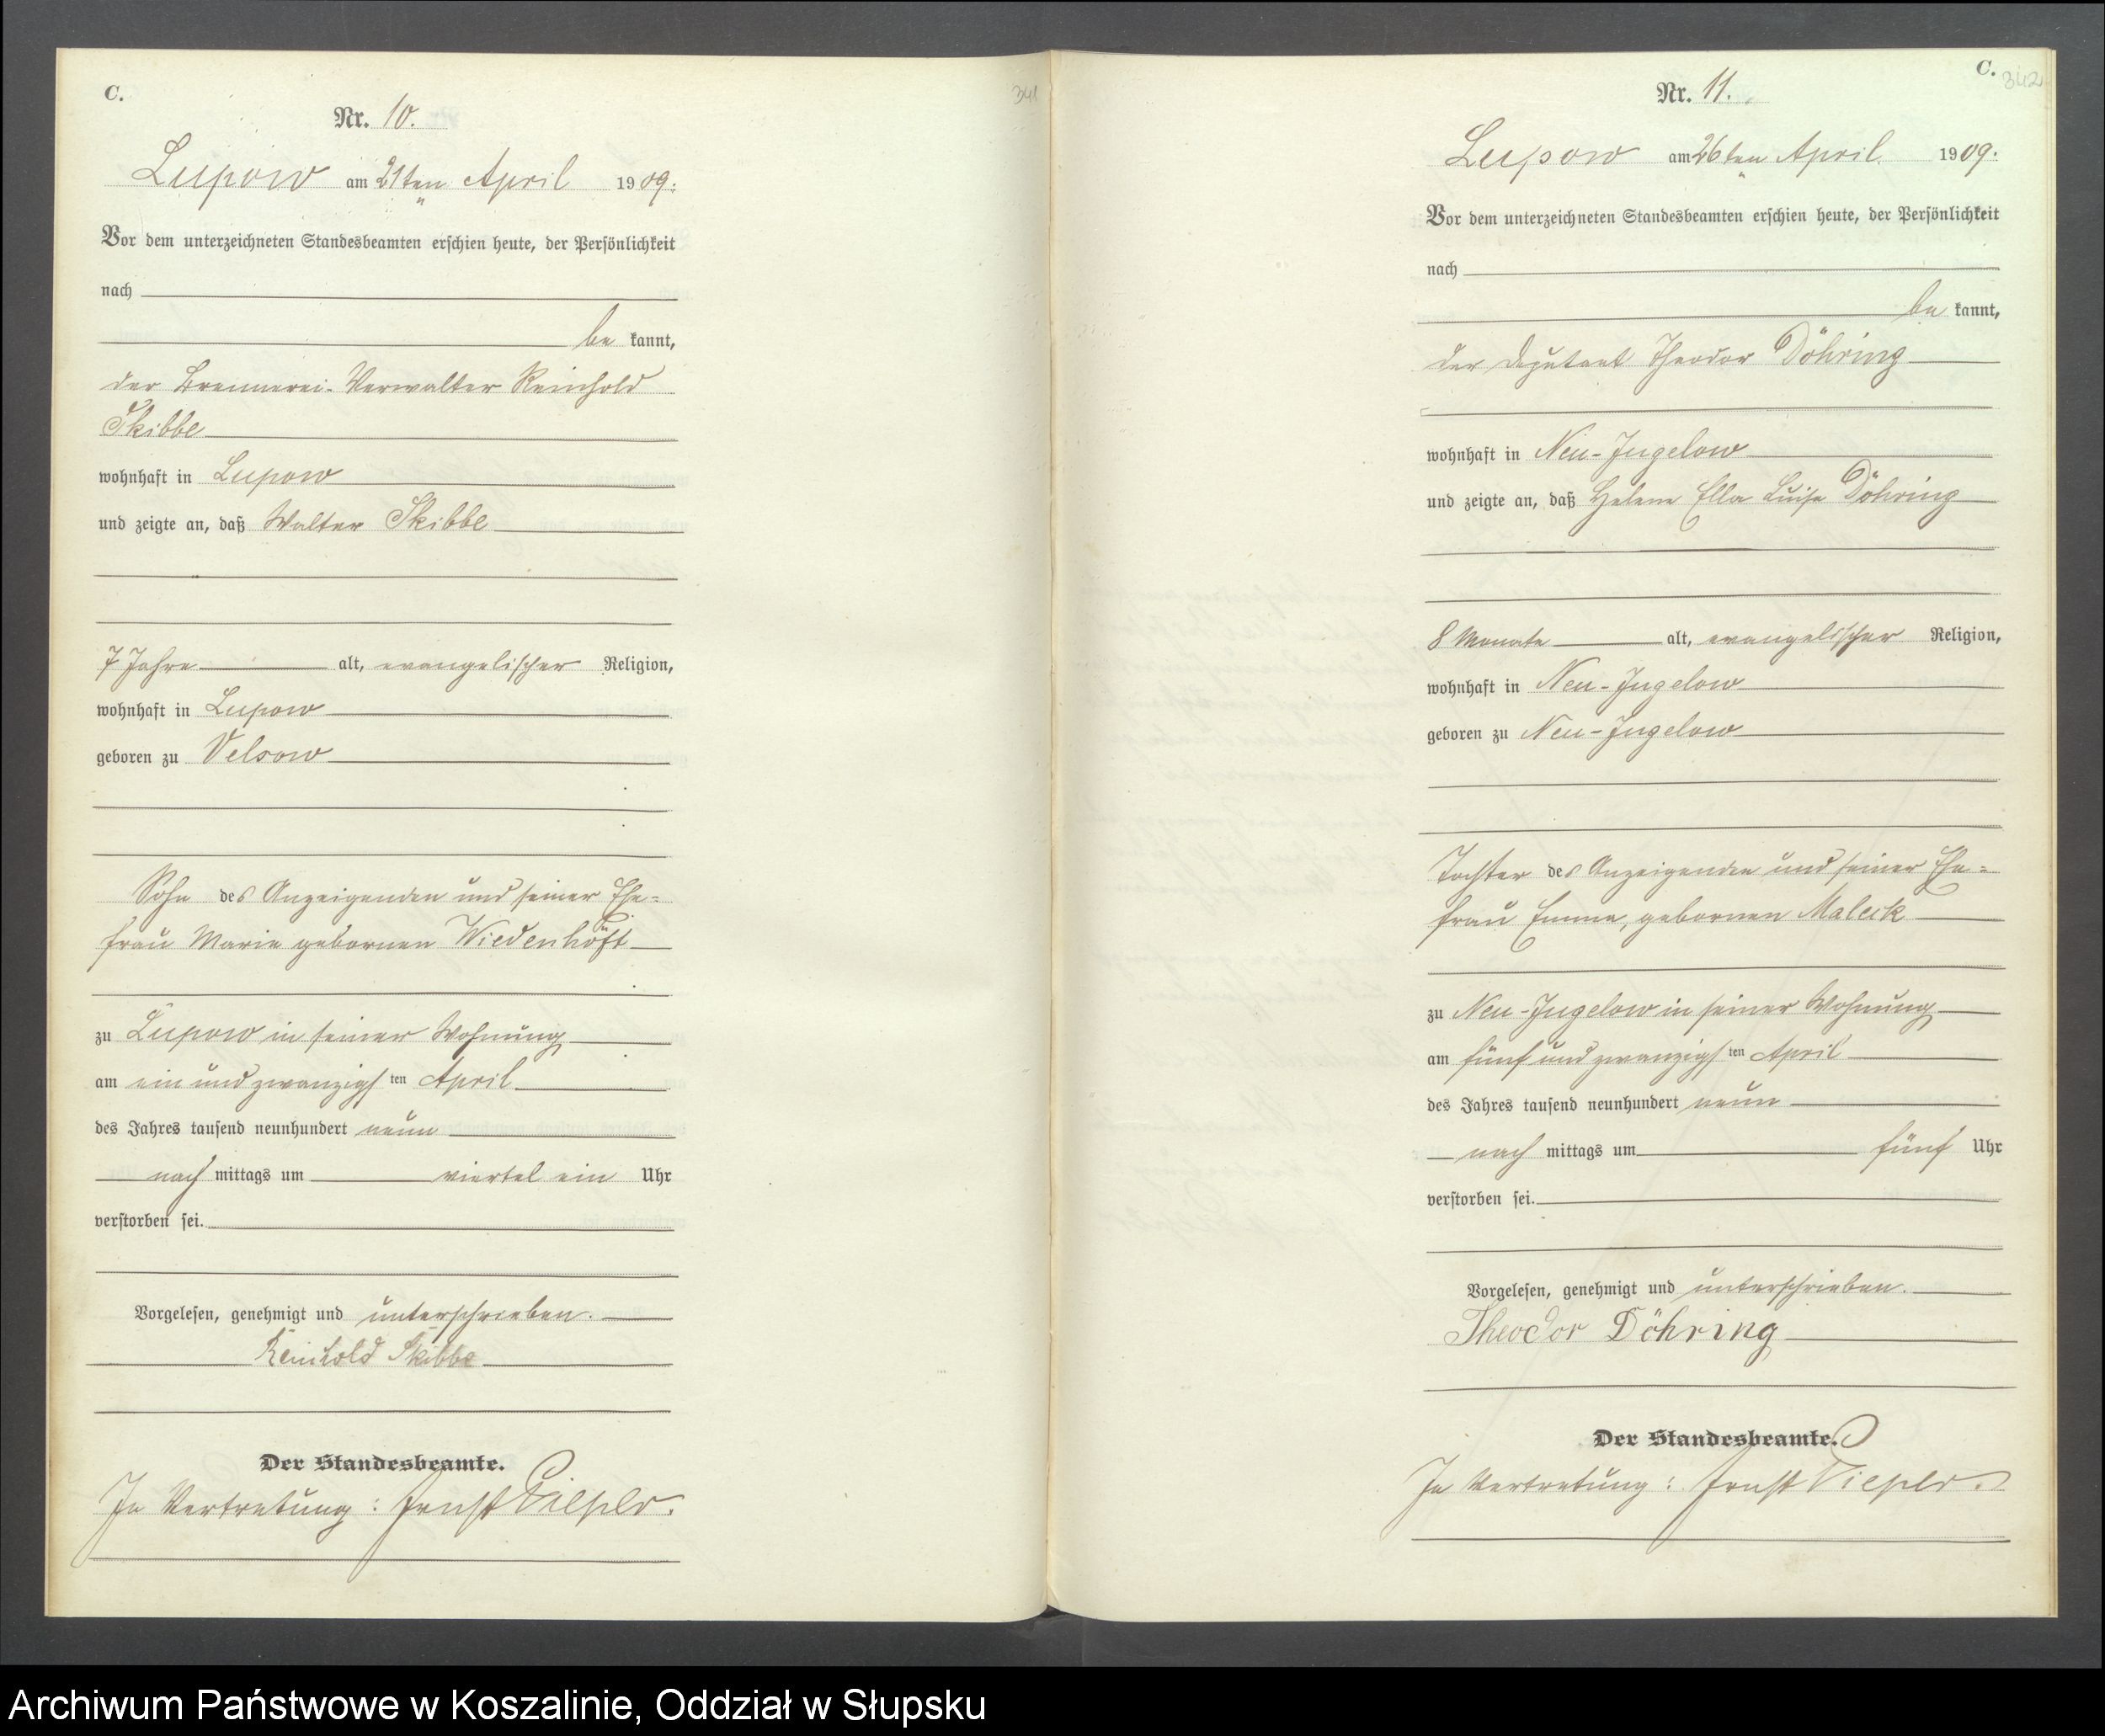 C.
341
Nr. 10.
Lupow am 21ten April 1909:
Vor dem unterzeichneten Standesbeamten erschien heute, der Persönlichkeit
nach
be kannt,
der Brennerei-Verwalter Reinhold
Skibbe
wohnhaft in Lupow
und zeigte an, daß Walter Skibbe
7 Jahre alt, evangelischer Religion,
wohnhaft in Lupow
geboren zu Velsow
Sohn des Anzeigenden und seiner Ehe=
frau Marie gebornen Wiedenhöft
zu Lupow in seiner Wohnung
am ein und zwanzigsten April
des Jahres tausend neunhundert neun
nach mittags um viertel ein Uhr
verstorben sei.
Vorgelesen, genehmigt und unterschrieben.
Reinhold Skibbe
Der Standesbeamte.
In Vertretung: Ernst
C.
342
Nr. 11.
Lupow am 26ten April 1909:
Vor dem unterzeichneten Standesbeamten erschien heute, der Persönlichkeit
nach
be kannt,
der Deputant Theodor Döhring
wohnhaft in Neu-Jugelow
und zeigte an, daß Helene Ella Luise Döhring
8 Monate alt, evangelischer Religion,
wohnhaft in Neu-Jugelow
geboren zu Neu-Jugelow
Tochter des Anzeigenden und seiner Ehe=
frau Emma, gebornen Maleck
zu Neu-Jugelow in seiner Wohnung
am fünf und zwanzigsten April
des Jahres tausend neunhundert neun
nach mittags um fünf Uhr
verstorben sei.
Vorgelesen, genehmigt und unterschrieben.
Theodor Döhring
Der Standesbeamte.
In Vertretung: Ernst
Archiwum Państwowe w Koszalinie, Oddział w Słupsku